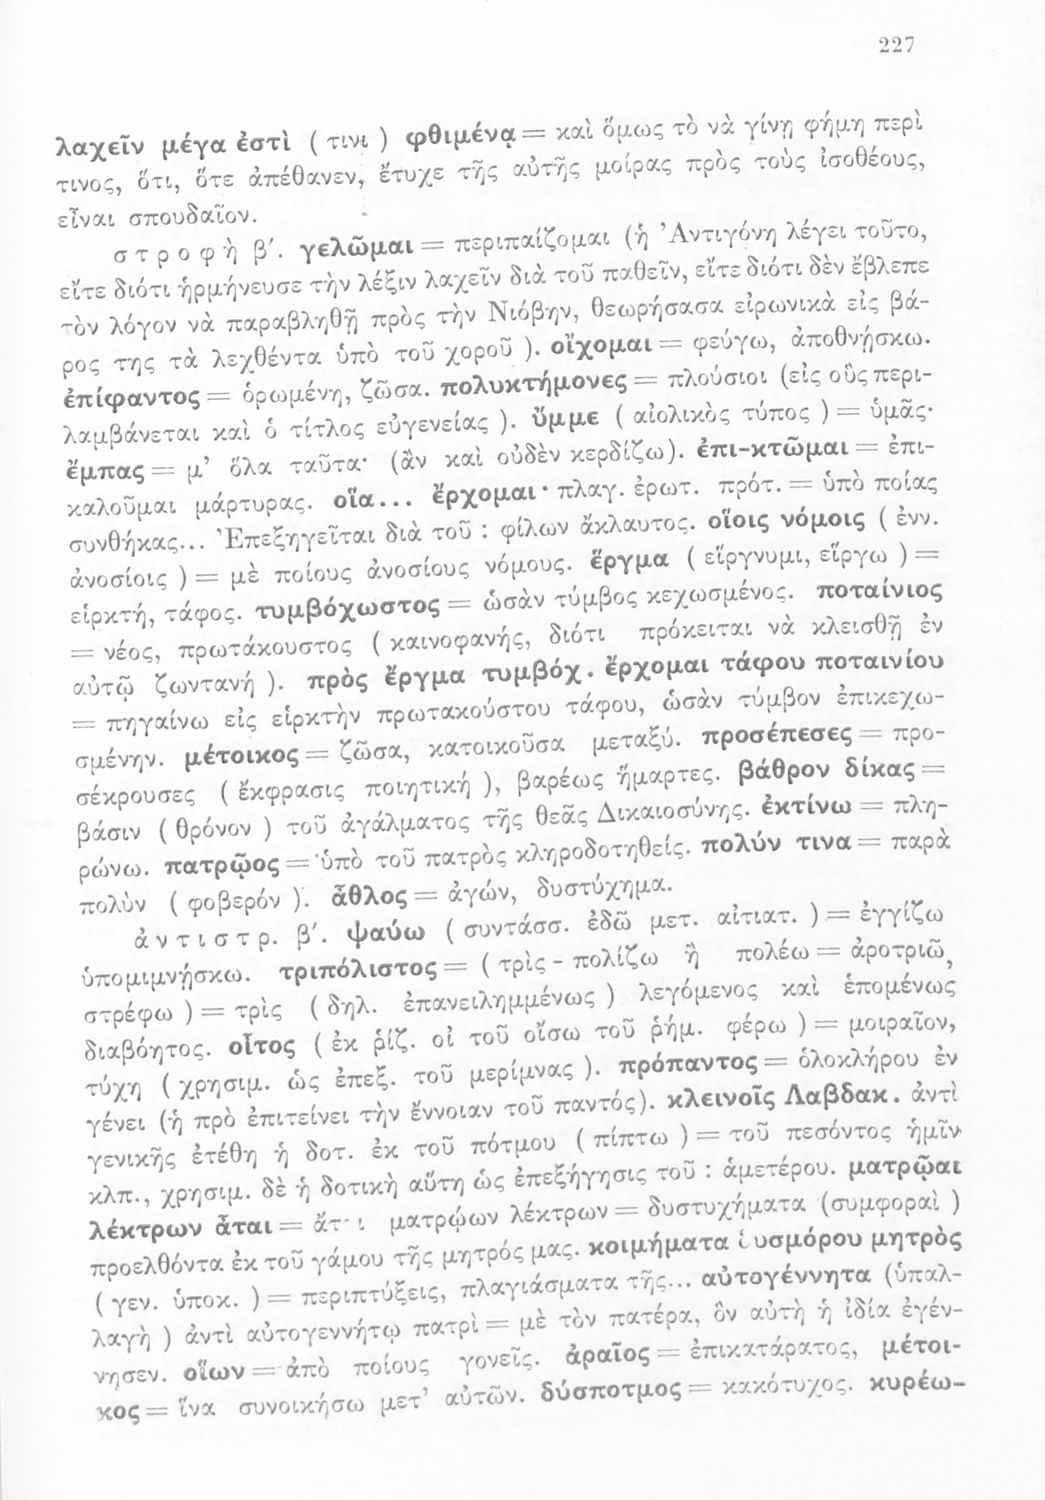 227
λαχεῖν μέγα ἐστὶ ( τινι ) φθιμένᾳ = καὶ ὅμως τὸ νὰ γίνῃ φήμη περὶ
τινος, ὅτι, ὅτε ἀπέθανεν, ἔτυχε τῆς αὐτῆς μοίρας πρὸς τοὺς ἰσοθέους,
εἶναι σπουδαῖον.
στροφὴ β′. γελῶμαι = περιπαίζομαι (ἡ Ἀντιγόνη λέγει τοῦτο,
εἴτε διότι ἡρμήνευσε τὴν λέξιν λαχεῖν διὰ τοῦ παθεῖν, εἴτε διότι δὲν ἔβλεπε
τὸν λόγον νὰ παραβληθῇ πρὸς τὴν Νιόβην, θεωρήσασα εἰρωνικὰ εἰς βά-
ρος της τὰ λεχθέντα ὑπὸ τοῦ χοροῦ ). οἴχομαι = φεύγω, ἀποθνῄσκω.
ἐπίφαντος = ὁρωμένη, ζῶσα. πολυκτήμονες = πλούσιοι (εἰς οὓς περι-
λαμβάνεται καὶ ὁ τίτλος εὐγενείας ). ὔμμε ( αἰολικὸς τύπος ) = ὑμᾶς·
ἔμπας = μ’ ὅλα ταῦτα· (ἂν καὶ οὐδὲν κερδίζω). ἐπι-κτῶμαι = ἐπι-
καλοῦμαι μάρτυρας. οἵα... ἔρχομαι· πλαγ. ἐρωτ. πρότ. = ὑπὸ ποίας
συνθήκας... Ἐπεξηγεῖται διὰ τοῦ : φίλων ἄκλαυτος. οἵοις νόμοις ( ἐνν.
ἀνοσίοις ) = μὲ ποίους ἀνοσίους νόμους. ἕργμα ( εἵργνυμι, εἵργω ) =
εἱρκτή, τάφος. τυμβόχωστος = ὡσὰν τύμβος κεχωσμένος. ποταίνιος
= νέος, πρωτάκουστος ( καινοφανής, διότι πρόκειται νὰ κλεισθῇ ἐν
αὐτῷ ζωντανή ). πρὸς ἕργμα τυμβόχ. ἔρχομαι τάφου ποταινίου
= πηγαίνω εἰς εἱρκτὴν πρωτακούστου τάφου, ὡσὰν τύμβον ἐπικεχω-
σμένην. μέτοικος = ζῶσα, κατοικοῦσα μεταξύ. προσέπεσες = προ-
σέκρουσες ( ἔκφρασις ποιητική ), βαρέως ἥμαρτες. βάθρον δίκας =
βάσιν ( θρόνον ) τοῦ ἀγάλματος τῆς θεᾶς Δικαιοσύνης. ἐκτίνω = πλη-
ρώνω. πατρῷος = ὑπὸ τοῦ πατρὸς κληροδοτηθείς. πολύν τινα = παρὰ
πολὺν ( φοβερόν ). ἆθλος = ἀγών, δυστύχημα.
ἀντιστρ. β′. ψαύω ( συντάσσ. ἐδῶ μετ. αἰτιατ. ) = ἐγγίζω
ὑπομιμνῄσκω. τριπόλιστος = ( τρὶς - πολίζω ἢ πολέω = ἀροτριῶ,
στρέφω ) = τρὶς ( δηλ. ἐπανειλημμένως ) λεγόμενος καὶ ἑπομένως
διαβόητος. οἶτος ( ἐκ ῥίζ. οἰ τοῦ οἴσω τοῦ ῥήμ. φέρω ) = μοιραῖον,
τύχη ( χρησιμ. ὡς ἐπεξ. τοῦ μερίμνας ). πρόπαντος = ὁλοκλήρου ἐν
γένει (ἡ πρὸ ἐπιτείνει τὴν ἔννοιαν τοῦ παντός). κλεινοῖς Λαβδακ. ἀντὶ
γενικῆς ἐτέθη ἡ δοτ. ἐκ τοῦ πότμου ( πίπτω ) = τοῦ πεσόντος ἡμῖν
κλπ., χρησιμ. δὲ ἡ δοτικὴ αὕτη ὡς ἐπεξήγησις τοῦ : ἁμετέρου. ματρῷαι
λέκτρων ἆται = ἄτ ι ματρῴων λέκτρων = δυστυχήματα (συμφοραὶ )
προελθόντα ἐκ τοῦ γάμου τῆς μητρός μας. κοιμήματα δυσμόρου μητρὸς
( γεν. ὑποκ. ) = περιπτύξεις, πλαγιάσματα τῆς... αὐτογέννητα (ὑπαλ-
λαγὴ ) ἀντὶ αὐτογεννήτῳ πατρὶ = μὲ τὸν πατέρα, ὃν αὐτὴ ἡ ἰδία ἐγέν-
νησεν. οἵων = ἀπὸ ποίους γονεῖς. ἀραῖος = ἐπικατάρατος, μέτοι-
κος = ἵνα συνοικήσω μετ’ αὐτῶν. δύσποτμος = κακότυχος. κυρέω-